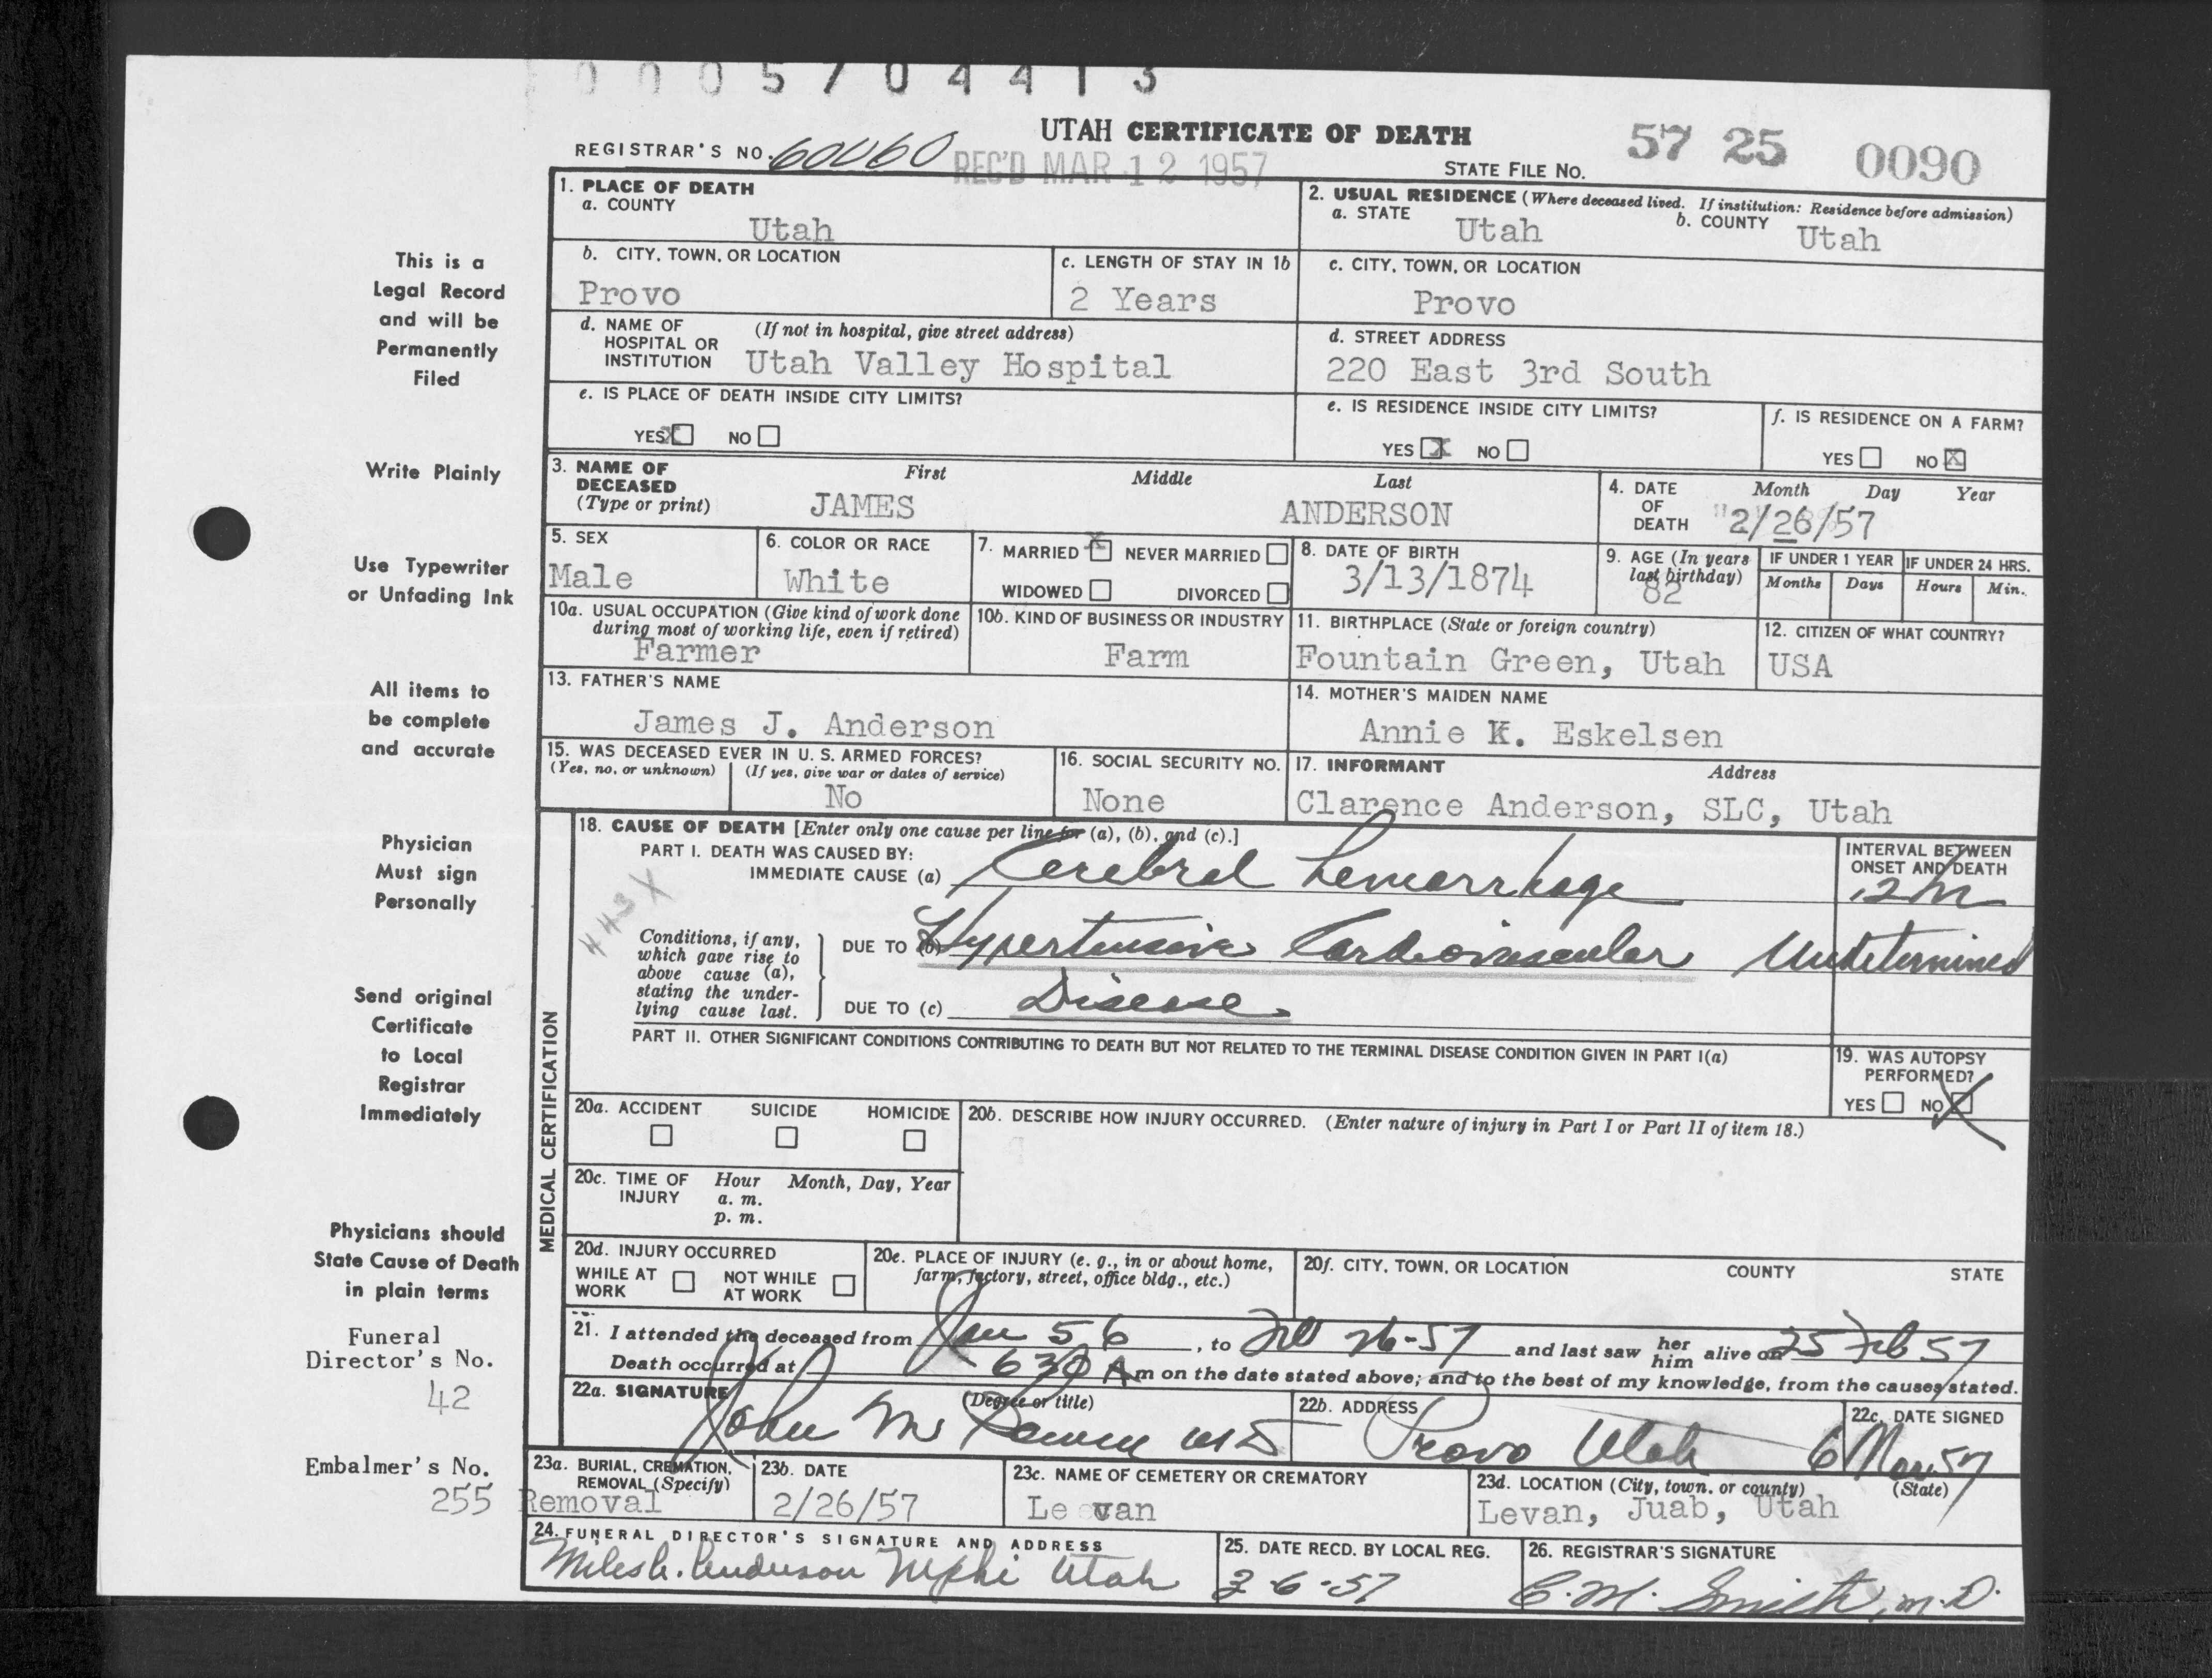 0005704413
UTAH CERTIFICATE OF DEATH
REGISTRAR'S NO. 60060
REC'D MAR 12 1957
STATE FILE No. 57 25 0090
This is a
Legal Record
and will be
Permanently
Filed
Write Plainly
Use Typewriter
or Unfading Ink
All items to
be complete
and accurate
Physician
Must sign
Personally
Send original
Certificate
to Local
Registrar
Immediately
Physicians should
State Cause of Death
in plain terms
Funeral
Director's No.
42
Embalmer's No.
255
1. PLACE OF DEATH
a. COUNTY
Utah
2. USUAL RESIDENCE (Where deceased lived. If institution: Residence before admission)
a. STATE Utah b. COUNTY Utah
b. CITY, TOWN, OR LOCATION
Provo
c. LENGTH OF STAY IN 1b
2 Years
c. CITY, TOWN, OR LOCATION
Provo
d. NAME OF (If not in hospital, give street address)
HOSPITAL OR
INSTITUTION Utah Valley Hospital
d. STREET ADDRESS
220 East 3rd South
e. IS PLACE OF DEATH INSIDE CITY LIMITS?
YES X NO
e. IS RESIDENCE INSIDE CITY LIMITS?
YES X NO
f. IS RESIDENCE ON A FARM?
YES NO X
3. NAME OF
DECEASED
(Type or print)
First Middle Last
JAMES ANDERSON
4. DATE
OF
DEATH
Month Day Year
2/26/57
5. SEX
Male
6. COLOR OR RACE
White
7. MARRIED X NEVER MARRIED
WIDOWED DIVORCED
8. DATE OF BIRTH
3/13/1874
9. AGE (In years
last birthday)
82
IF UNDER 1 YEAR
Months Days
IF UNDER 24 HRS.
Hours Min.
10a. USUAL OCCUPATION (Give kind of work done
during most of working life, even if retired)
Farmer
10b. KIND OF BUSINESS OR INDUSTRY
Farm
11. BIRTHPLACE (State or foreign country)
Fountain Green, Utah
12. CITIZEN OF WHAT COUNTRY?
USA
13. FATHER'S NAME
James J. Anderson
14. MOTHER'S MAIDEN NAME
Annie K. Eskelsen
15. WAS DECEASED EVER IN U. S. ARMED FORCES?
(Yes, no, or unknown) (If yes, give war or dates of service)
No
16. SOCIAL SECURITY NO.
None
17. INFORMANT Address
Clarence Anderson, SLC, Utah
MEDICAL CERTIFICATION
18. CAUSE OF DEATH [Enter only one cause per line for (a), (b), and (c).]
PART I. DEATH WAS CAUSED BY:
IMMEDIATE CAUSE (a) Cerebral hemorrhage
INTERVAL BETWEEN
ONSET AND DEATH
443X
Conditions, if any,
which gave rise to
above cause (a),
stating the under-
lying cause last.
DUE TO (b) Hypertensive Cardiovascular Undetermined
DUE TO (c) Disease
PART II. OTHER SIGNIFICANT CONDITIONS CONTRIBUTING TO DEATH BUT NOT RELATED TO THE TERMINAL DISEASE CONDITION GIVEN IN PART I(a)
19. WAS AUTOPSY
PERFORMED?
YES NO X
20a. ACCIDENT SUICIDE HOMICIDE
20b. DESCRIBE HOW INJURY OCCURRED. (Enter nature of injury in Part I or Part II of item 18.)
20c. TIME OF Hour Month, Day, Year
INJURY a. m.
p. m.
20d. INJURY OCCURRED
WHILE AT NOT WHILE
WORK AT WORK
20e. PLACE OF INJURY (e. g., in or about home,
farm, factory, street, office bldg., etc.)
20f. CITY, TOWN, OR LOCATION COUNTY STATE
21. I attended the deceased from Jan 56, to Feb 26-57 and last saw her him alive on 25 Feb 57
Death occurred at 630 A m on the date stated above; and to the best of my knowledge, from the causes stated.
22a. SIGNATURE (Degree or title)
John M MD
22b. ADDRESS
Provo Utah
22c. DATE SIGNED
6 Mar. 57
23a. BURIAL, CREMATION,
REMOVAL (Specify)
Removal
23b. DATE
2/26/57
23c. NAME OF CEMETERY OR CREMATORY
Le van
23d. LOCATION (City, town, or county) (State)
Levan, Juab, Utah
24. FUNERAL DIRECTOR'S SIGNATURE AND ADDRESS
Miles A. Anderson Nephi Utah
25. DATE RECD. BY LOCAL REG.
3-6-57
26. REGISTRAR'S SIGNATURE
C. M. Smith, M.D.